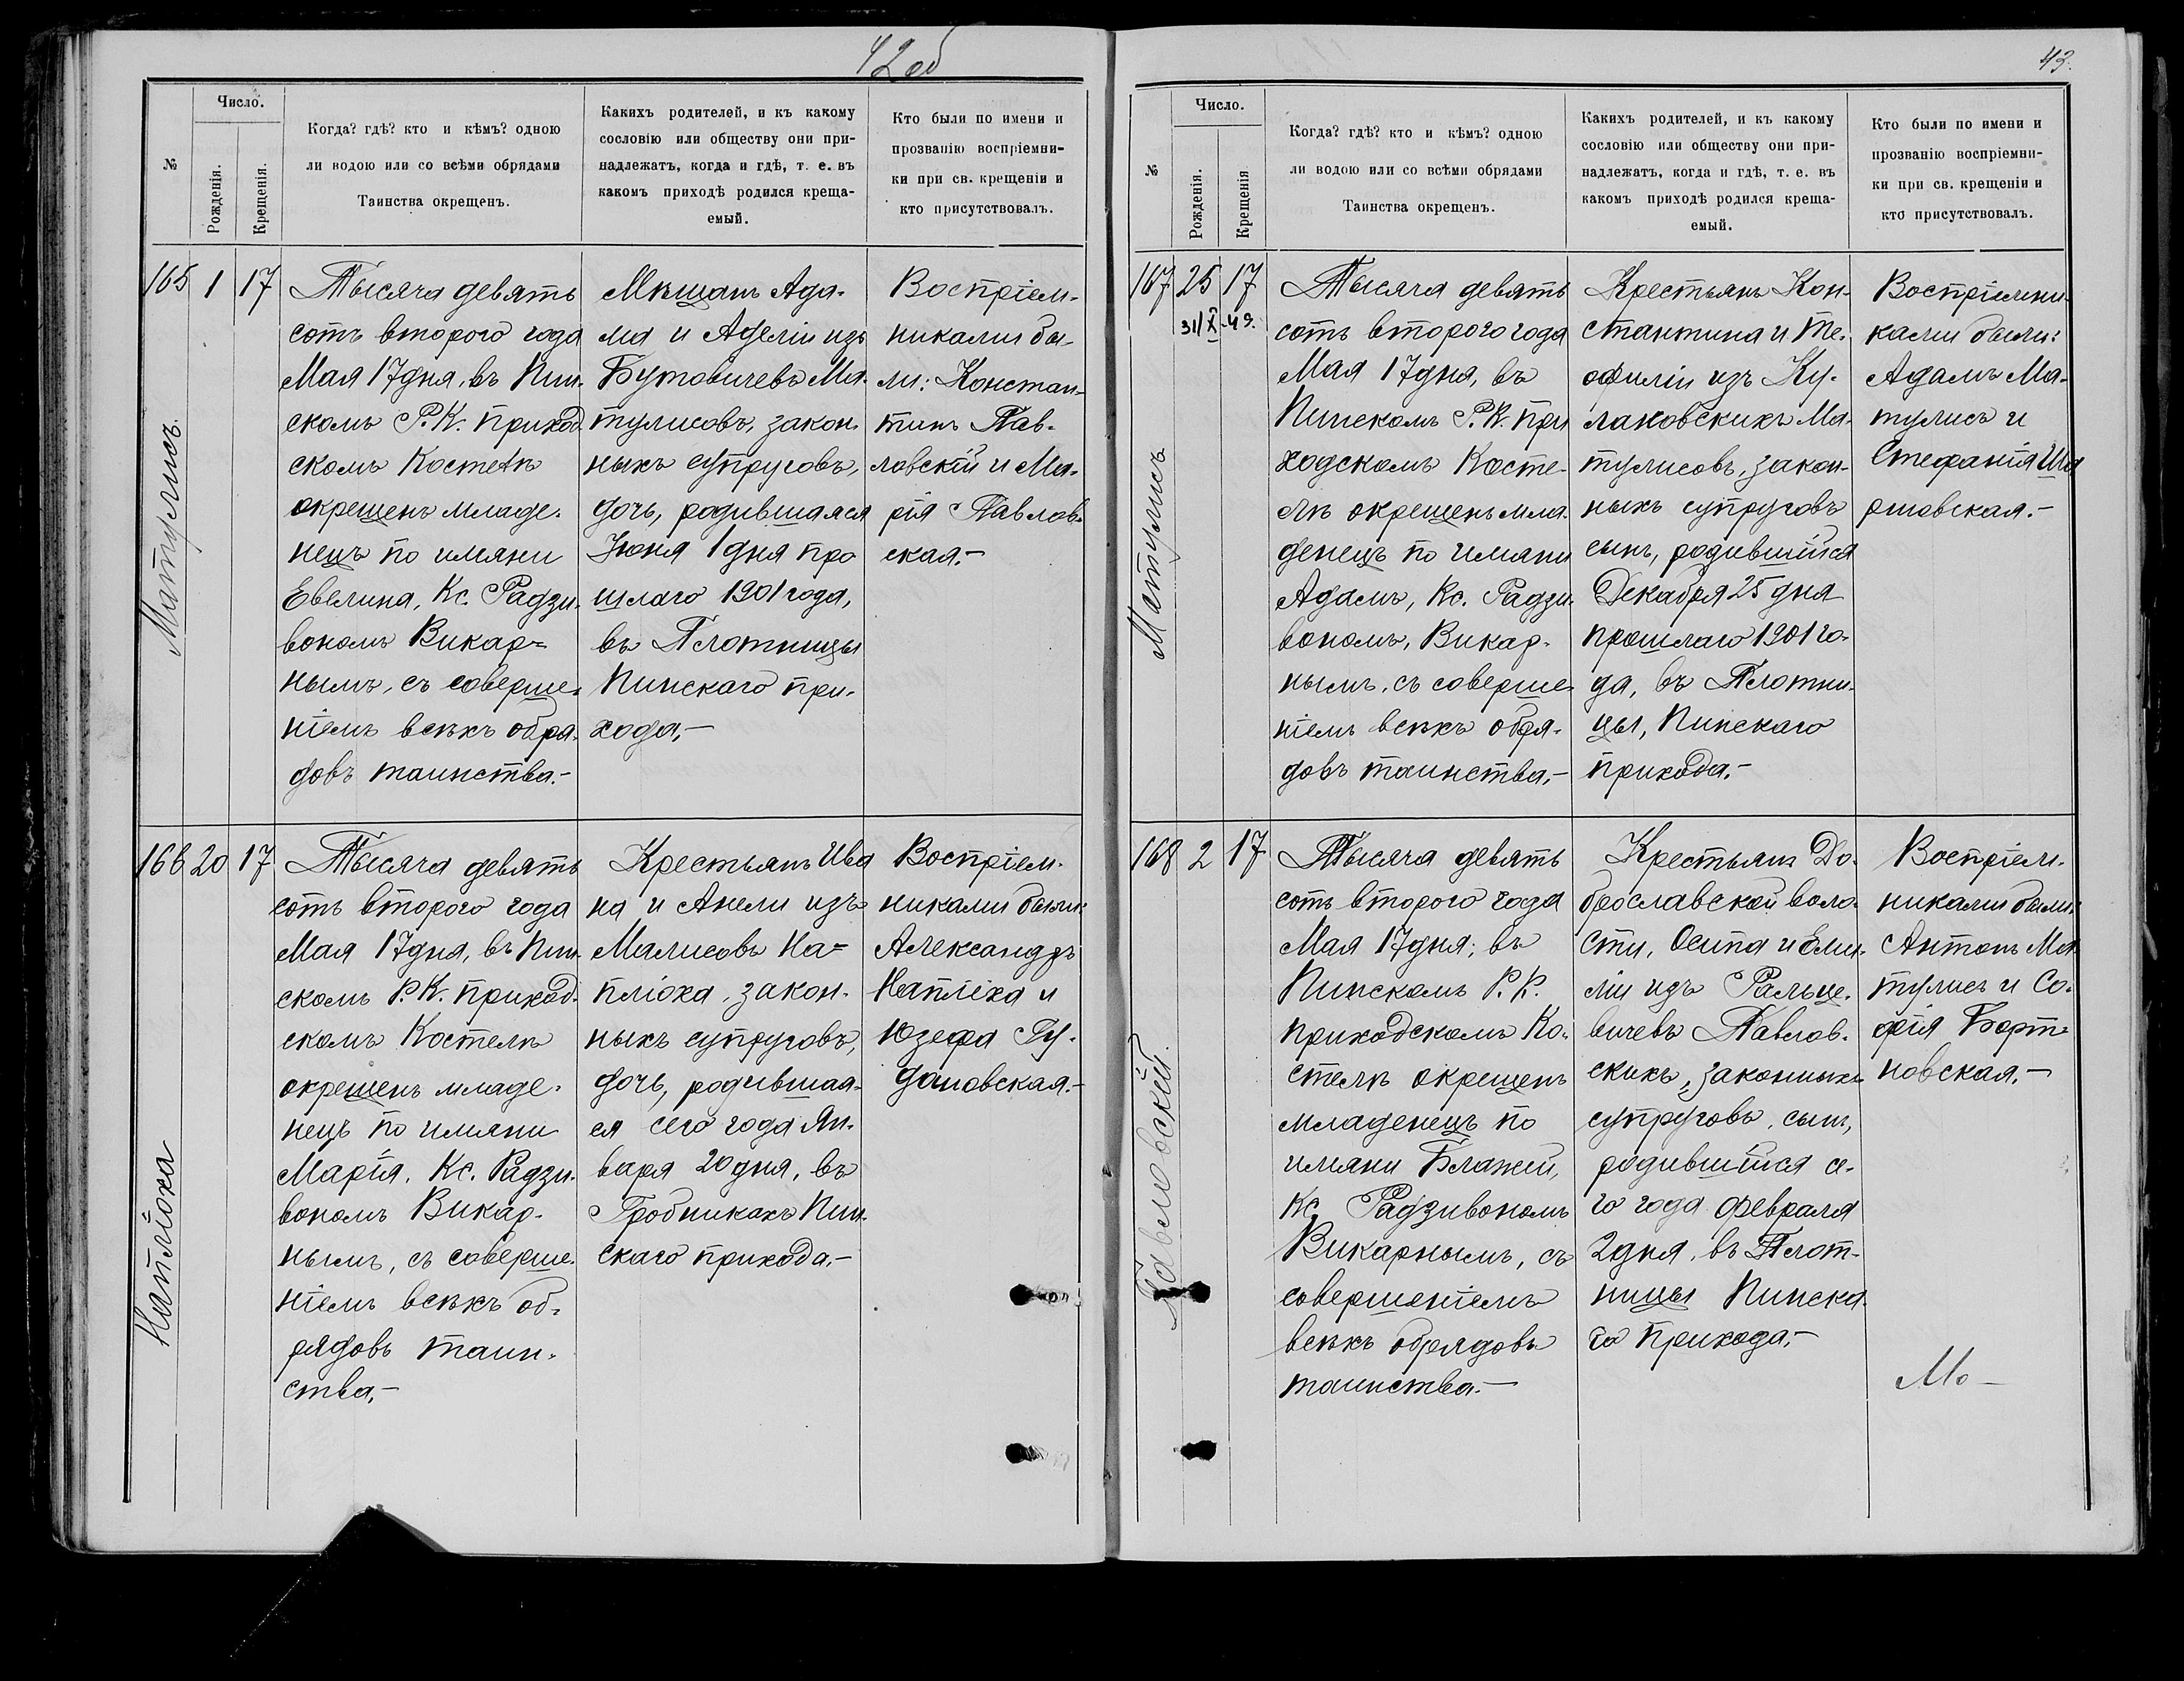 42об
№
Число.
Рожденія.
Крещенія.
Когда? гдѣ? кто и кѣмъ? одною
ли водою или со всѣми обрядами
Таинства окрещенъ.
Какихъ родителей, и къ какому
сословію или обществу они при-
надлежатъ, когда и гдѣ, т. е. въ
какомъ приходѣ родился креща-
емый.
Кто были по имени и
прозванію воспріемни-
ки при св. крещеніи и
кто присутствовалъ.
165 1 17
Матулисъ.
Тысяча девять
сотъ второго года
Мая 17 дня, въ Пин-
скомъ Р. К. приход-
скомъ Костелѣ
окрещенъ младе-
нецъ по имяни
Евелина, Кс. Радзи-
вономъ Викар-
нымъ, съ соверше-
ніемъ всѣхъ обря-
довъ таинства.-
Мѣщанъ Ада-
ма и Аделіи изъ
Бутовичевъ Ма-
тулисовъ, закон-
ныхъ супруговъ,
дочь, родившаяся
Іюня 1 дня про
шлаго 1901 года,
въ Плотницы
Пинскаго при-
хода,-
Воспріем-
никами бы-
ли: Констан-
тинъ Пав-
ловскій и Ма-
рія Павлов-
ская.-
166 20 17
Наплюха
Тысяча девять
сотъ второго года
Мая 17 дня, въ Пин-
скомъ Р. К. приход-
скомъ Костелѣ
окрещенъ младе-
нецъ по имяни
Марія, Кс. Радзи-
вономъ Викар-
нымъ, съ соверше-
ніемъ всѣхъ об-
рядовъ таин-
ства,-
Крестьянъ Ива
на и Анели изъ
Малисовъ На-
пліоха, закон-
ныхъ супруговъ,
дочь, родившая-
ся сего года Ян-
варя 20 дня, въ
Гробникахъ Пин-
скаго прихода.-
Воспріем-
никами были:
Александръ
Напліха и
Юзефа Гу-
дановская.-
43.
№
Число.
Рожденія.
Крещенія
Когда? гдѣ? кто и кѣмъ? одною
ли водою или со всѣми обрядами
Таинства окрещенъ.
Какихъ родителей, и къ какому
сословію или обществу они при-
надлежатъ, когда и гдѣ, т. е. въ
какомъ приходѣ родился креща-
емый.
Кто были по имени и
прозванію воспріемни-
ки при св. крещеніи и
кто присутствовалъ.
167 25 17
31/X-49.
Матулисъ
Тысяча девять
сотъ второго года
Мая 17 дня, въ
Пинскомъ Р. К. при
ходскомъ Косте-
лѣ окрещенъ мла-
денецъ по имяни
Адамъ, Кс. Радзи-
вономъ, Викар-
нымъ, съ соверше
ніемъ всѣхъ обря-
довъ таинства,-
Крестьянъ Кон-
стантина и Те-
офиліи изъ Ку-
лаковскихъ Ма-
тулисовъ, закон-
ныхъ супруговъ
сынъ, родившійся
Декабря 25 дня
прошлаго 1901 го-
да, въ Плотни-
цы, Пинскаго
прихода.-
Воспріемни-
ками были:
Адамъ Ма-
тулисъ и
Стефанія
168 2 17
Павловскій.
Тысяча девять
сотъ второго года
Мая 17 дня, въ
Пинскомъ Р. К.
приходскомъ Ко-
стелѣ окрещенъ
младенецъ по
имяни Блажей,
Кс. Радзивономъ
Викарнымъ, съ
совершеніемъ
всѣхъ обрядовъ
таинства.-
Крестьянъ До-
брославской воло-
сти, Осипа и Еми-
ліи изъ Ральце-
вичевъ Павлов-
скихъ, законныхъ
супруговъ, сынъ,
родившійся се-
го года февраля
2 дня, въ Плот-
ницы Пинска-
го прихода,-
Воспріем-
никами были:
Антонъ Ма-
тулисъ и Со-
фія Борт-
новская.-